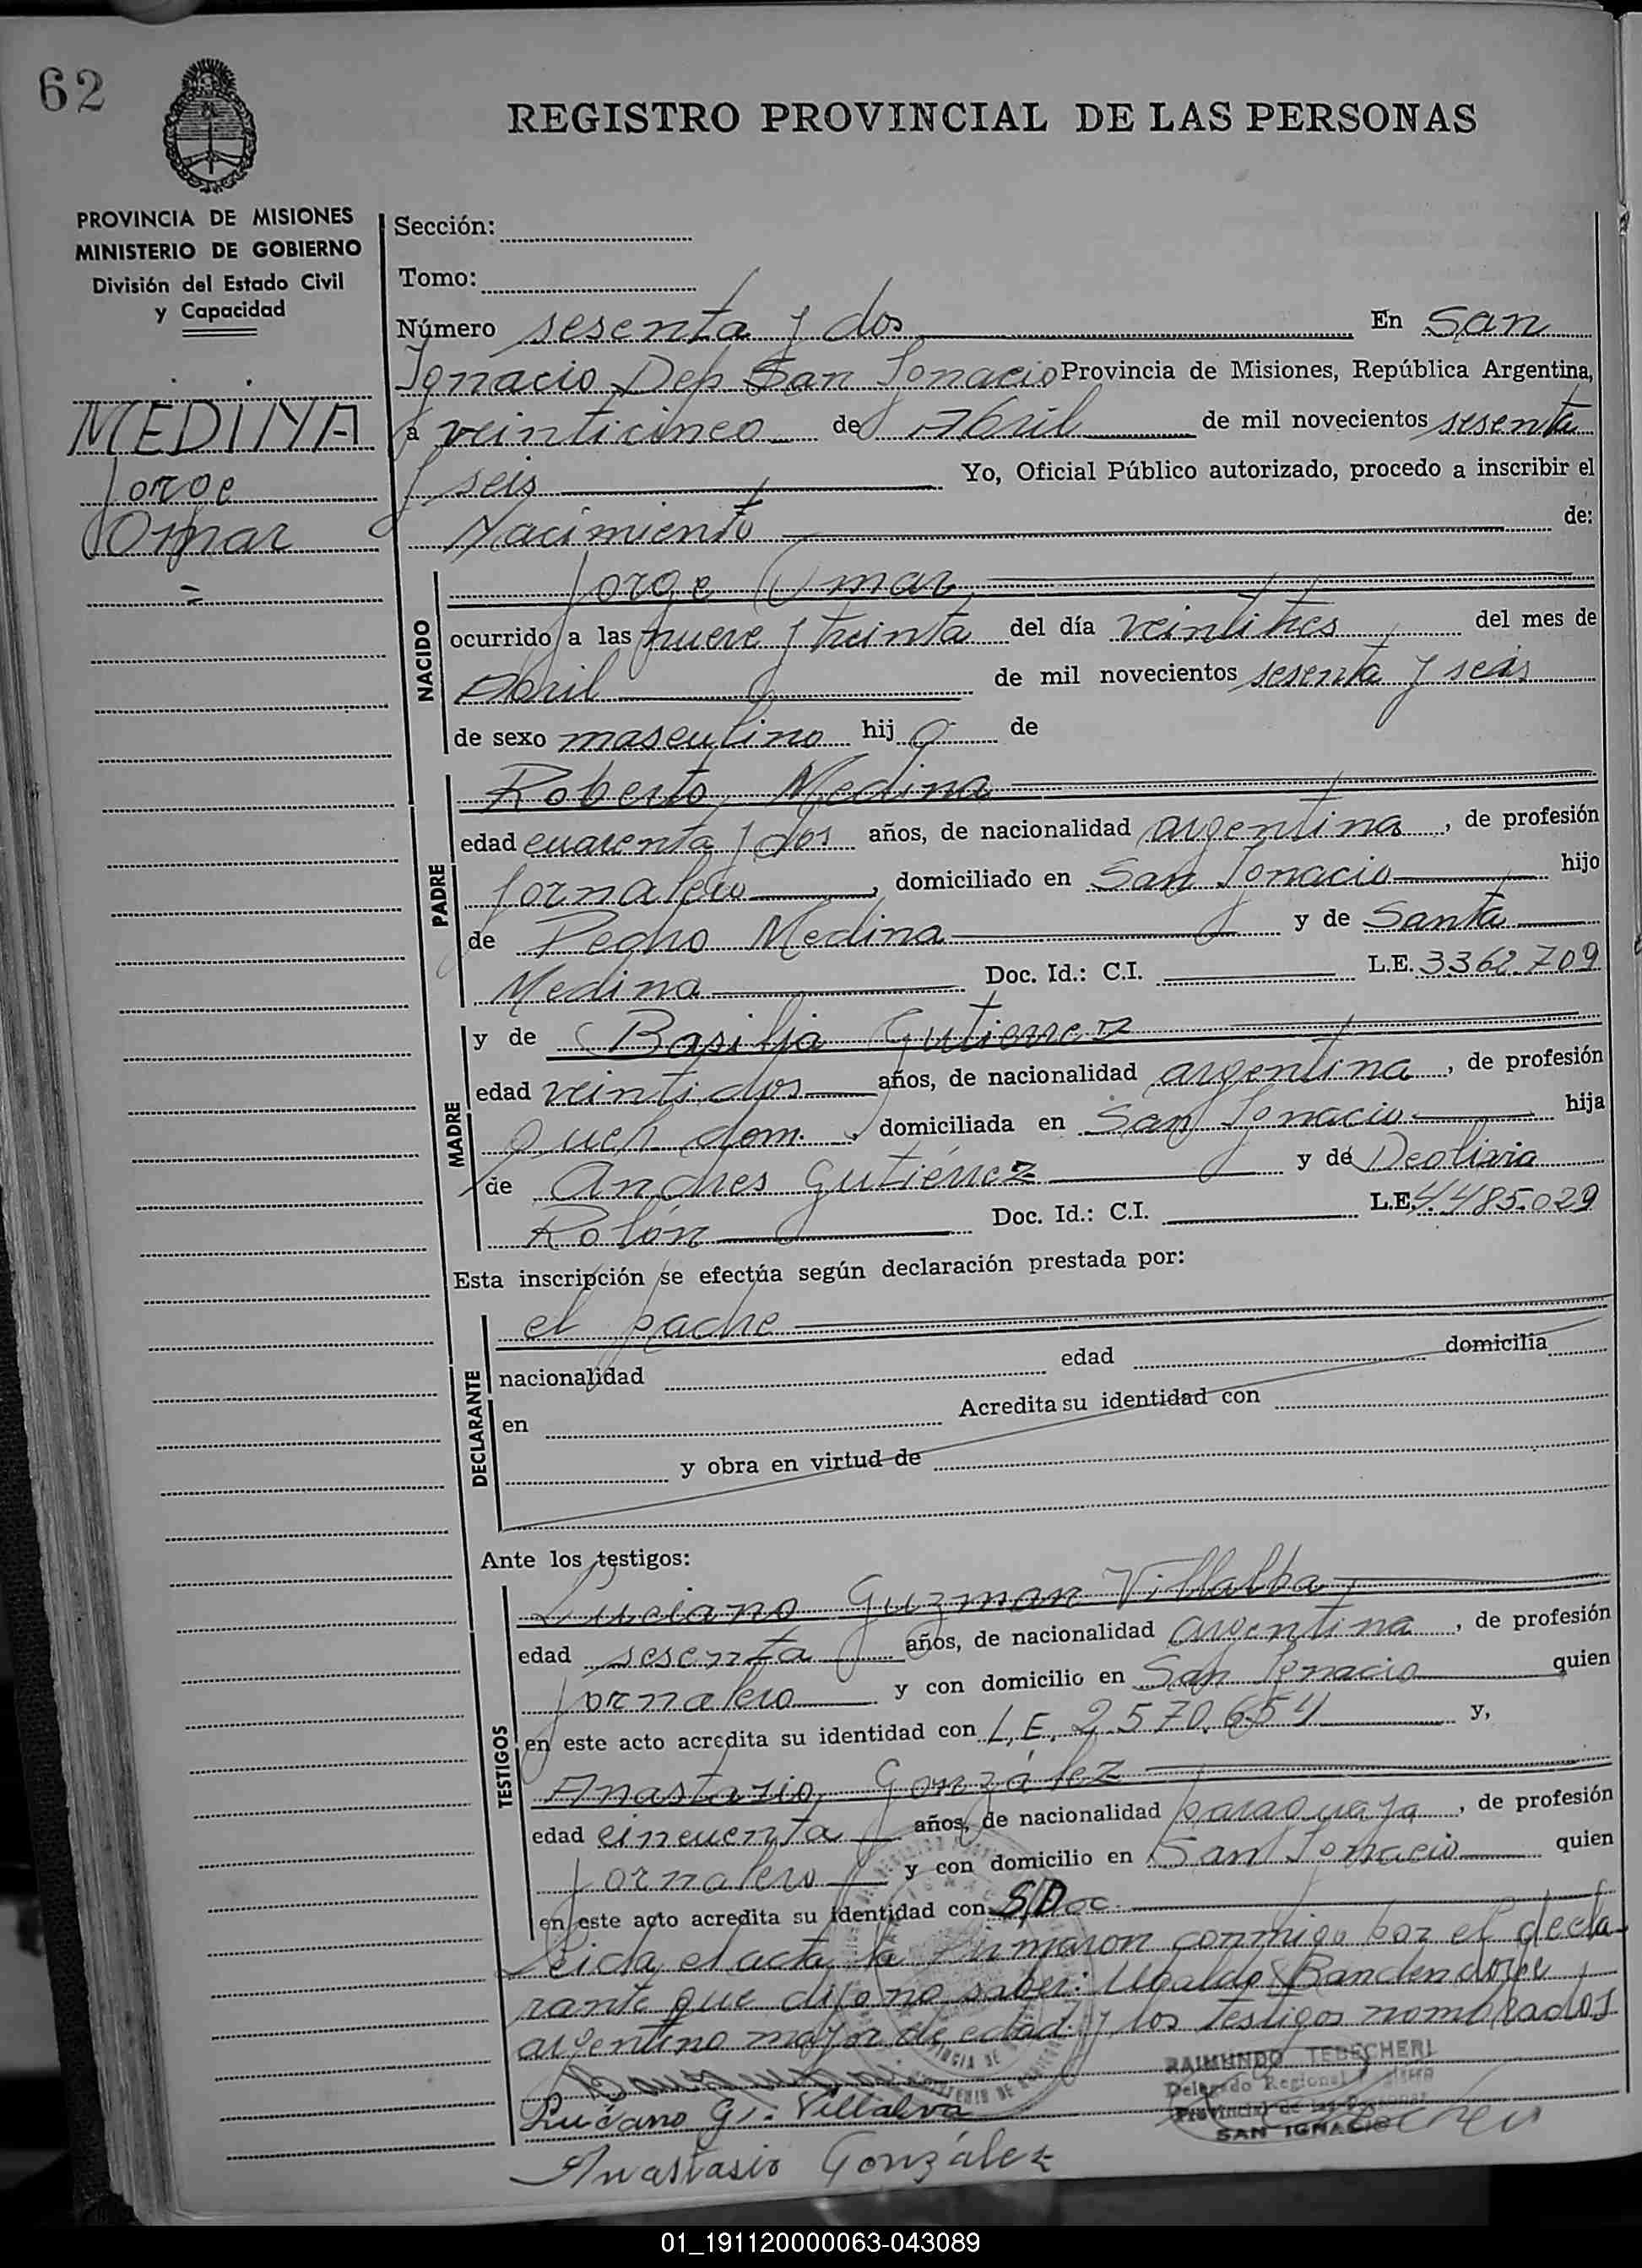 62
REGISTRO PROVINCIAL DE LAS PERSONAS
PROVINCIA DE MISIONES
MINISTERIO DE GOBIERNO
División del Estado Civil
y Capacidad
MEDINA
Jorge
Omar
Sección:
Tomo:
Número sesenta y dos En San
Ignacio Dep San Ignacio Provincia de Misiones, República Argentina,
a veinticinco de Abril de mil novecientos sesenta
y seis Yo, Oficial Público autorizado, procedo a inscribir el
Nacimiento de:
NACIDO
Jorge Omar
ocurrido a las nueve y treinta del día veintitres del mes de
Abril de mil novecientos sesenta y seis
de sexo masculino hijo de
PADRE
Roberto Medina
edad cuarenta y dos años, de nacionalidad argentina, de profesión
jornalero, domiciliado en San Ignacio hijo
de Pedro Medina y de Santa
Medina Doc. Id.: C.I. L.E. 3362.709
MADRE
y de Basilia Gutierrez
edad veintidos años, de nacionalidad argentina, de profesión
Queh dom. domiciliada en San Ignacio hija
de Andres Gutiérrez y de Deolivia
Rolón Doc. Id.: C.I. L.E. 4.485.029
Esta inscripción se efectúa según declaración prestada por:
DECLARANTE
el padre
nacionalidad edad domicilia
en Acredita su identidad con
y obra en virtud de
Ante los testigos:
TESTIGOS
Luciano Guzman Villalba
edad sesenta años, de nacionalidad argentina, de profesión
jornalero y con domicilio en San Ignacio quien
en este acto acredita su identidad con L.E. 2.570.654 y,
Anastazio González
edad cincuenta años, de nacionalidad paraguaya, de profesión
jornalero y con domicilio en San Ignacio quien
en este acto acredita su identidad con S/Doc.
Leida el acta, la firmaron conmigo por el decla-
rante que dijo no saber: Ubaldo Bandendorpe,
argentino mayor de edad y los testigos nombrados
RAIMUNDO TEDECHERI
Delegado Regional
Provincial de las Personas
SAN IGNACIO
Luciano G. Villalva
Anastasio González
01_191120000063-043089